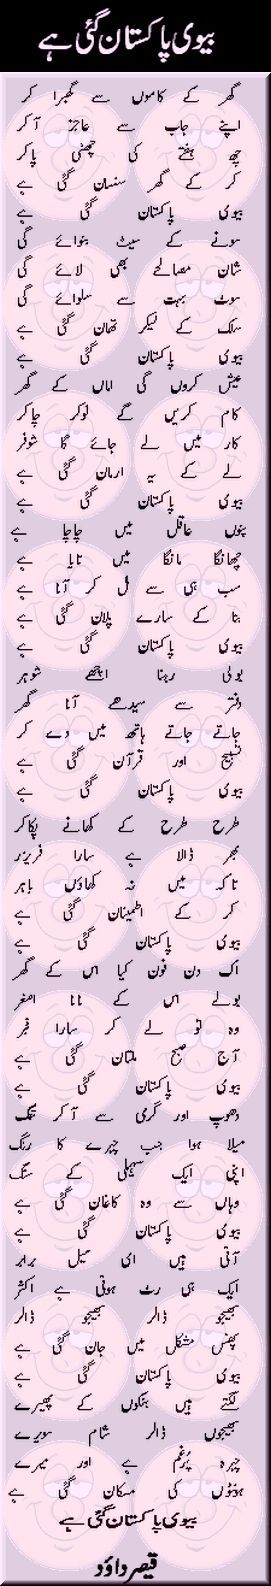 بیوی پاکستان گئی ہے
گھر کے کاموں سے گھبرا کر
اپنے جاب سے عاجز آ کر
چھ ہفتے کی چھٹی پا کر
کر کے گھر سنسان گئی ہے
بیوی پاکستان گئی ہے
سونے کے سیٹ بنوائے گی
شان مصالحے بھی لائے گی
سوٹ بہت سے سلوائے گی
سلک کے لیکر تھان گئی ہے
بیوی پاکستان گئی ہے
عیش کروں گی اماں کے گھر
کام کریں گے نوکر چاکر
کار میں لے جائے گا شوفر
لے کے یہ ارمان گئی ہے
بیوی پاکستان گئی ہے
پنوں عاقل میں چاچا ہے
چھانگا مانگا میں تایا ہے
سب ہی سے مل کر آنا ہے
بنا کے سارے پلان گئی ہے
بیوی پاکستان گئی ہے
بولی رہنا اچھے شوہر
دفتر سے سیدھے آنا گھر
جاتے جاتے ہاتھ میں دے کر
تسبیح اور قرآن گئی ہے
بیوی پاکستان گئی ہے
طرح طرح کے کھانے پکا کر
بھر ڈالا ہے سارا فریزر
تاکہ میں نہ کھاؤں باہر
کر کے اطمینان گئی ہے
بیوی پاکستان گئی ہے
اک دن فون کیا اس کے گھر
بولے اس کے نانا اصغر
وہ تو لے کر سارا ٹبر
آج صبح ملتان گئی ہے
بیوی پاکستان گئی ہے
دھوپ اور گرمی سے آ کر تنگ
میلا ہوا جب چہرے کا رنگ
اپنی ایک سہیلی کے سنگ
وہاں سے وہ کاغان گئی ہے
بیوی پاکستان گئی ہے
آتی ہیں ای میل برابر
ایک ہی رٹ ہوتی ہے اکثر
بھیجو ڈالر بھیجو ڈالر
پھنس مشکل میں جان گئی ہے
بیوی پاکستان گئی ہے
لگتے ہیں بنکوں کے پھیرے
بھیجوں ڈالر شام سویرے
چہرہ پُرغم ہے اور میرے
ہونٹوں کی مسکان گئی ہے
بیوی پاکستان گئی ہے
قیصر داؤد